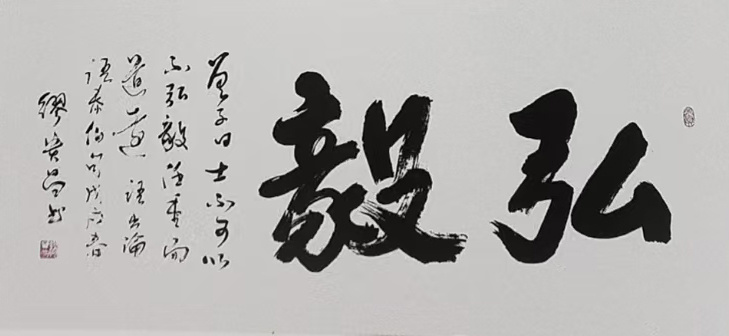 弘毅
曾子曰士不可以
不弘毅任重而
道遠 語出論
語泰伯句戊戌春
繆貴昌书